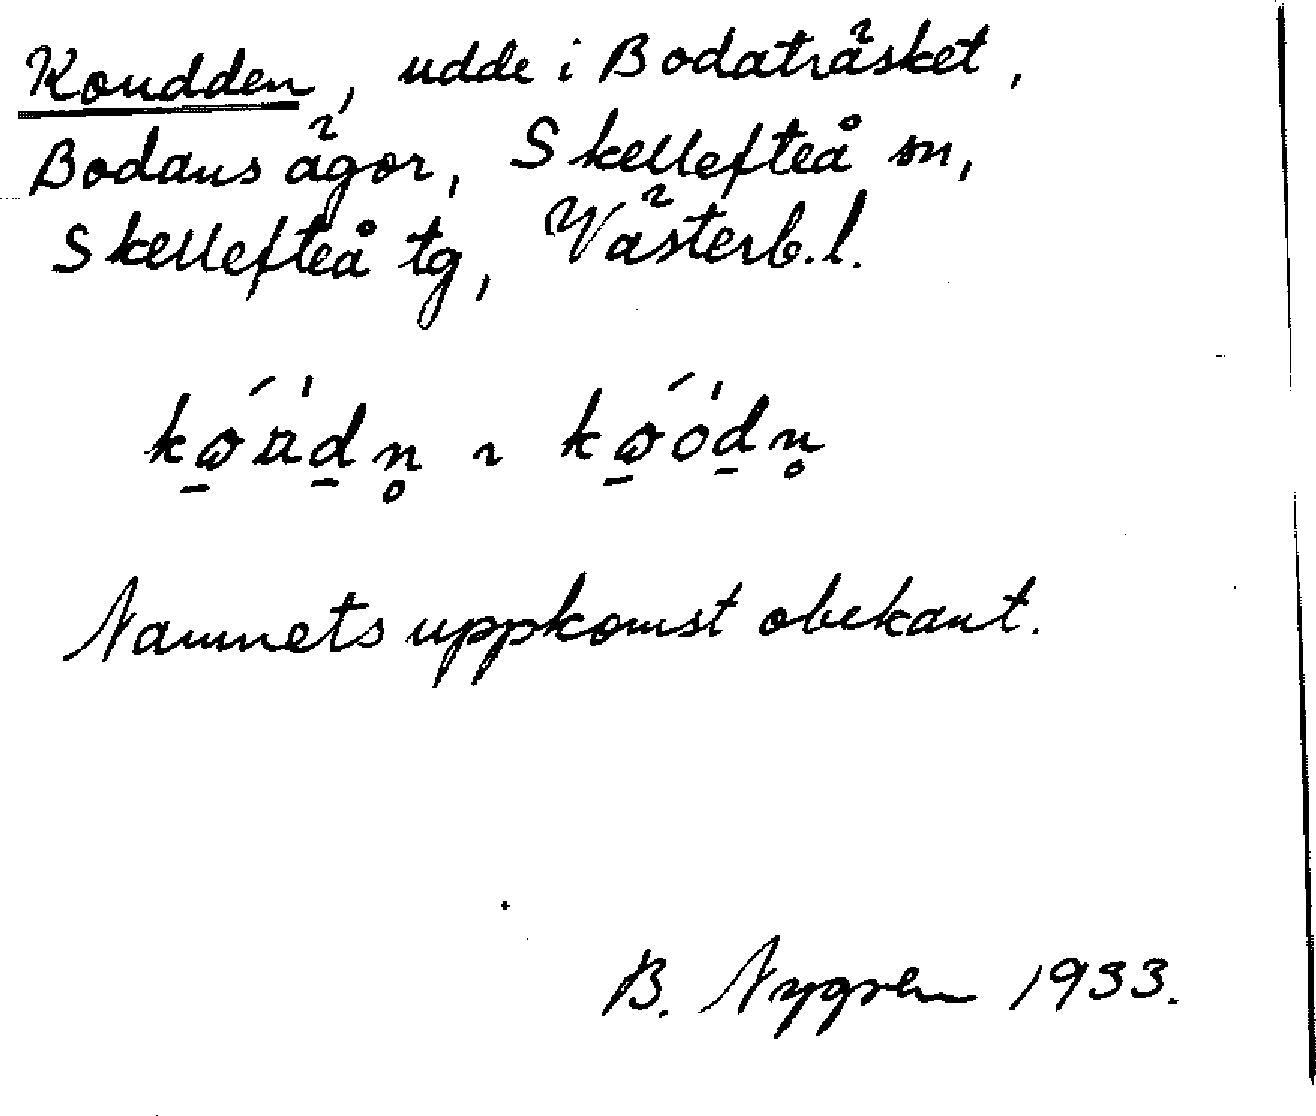 Koudden, udde i Bodaträsket,
Bodans ägor, Skellefteå sn,
Skellefteå tg, Västerb.l.
Namnets uppkomst obekant.
B. Nygren 1933.